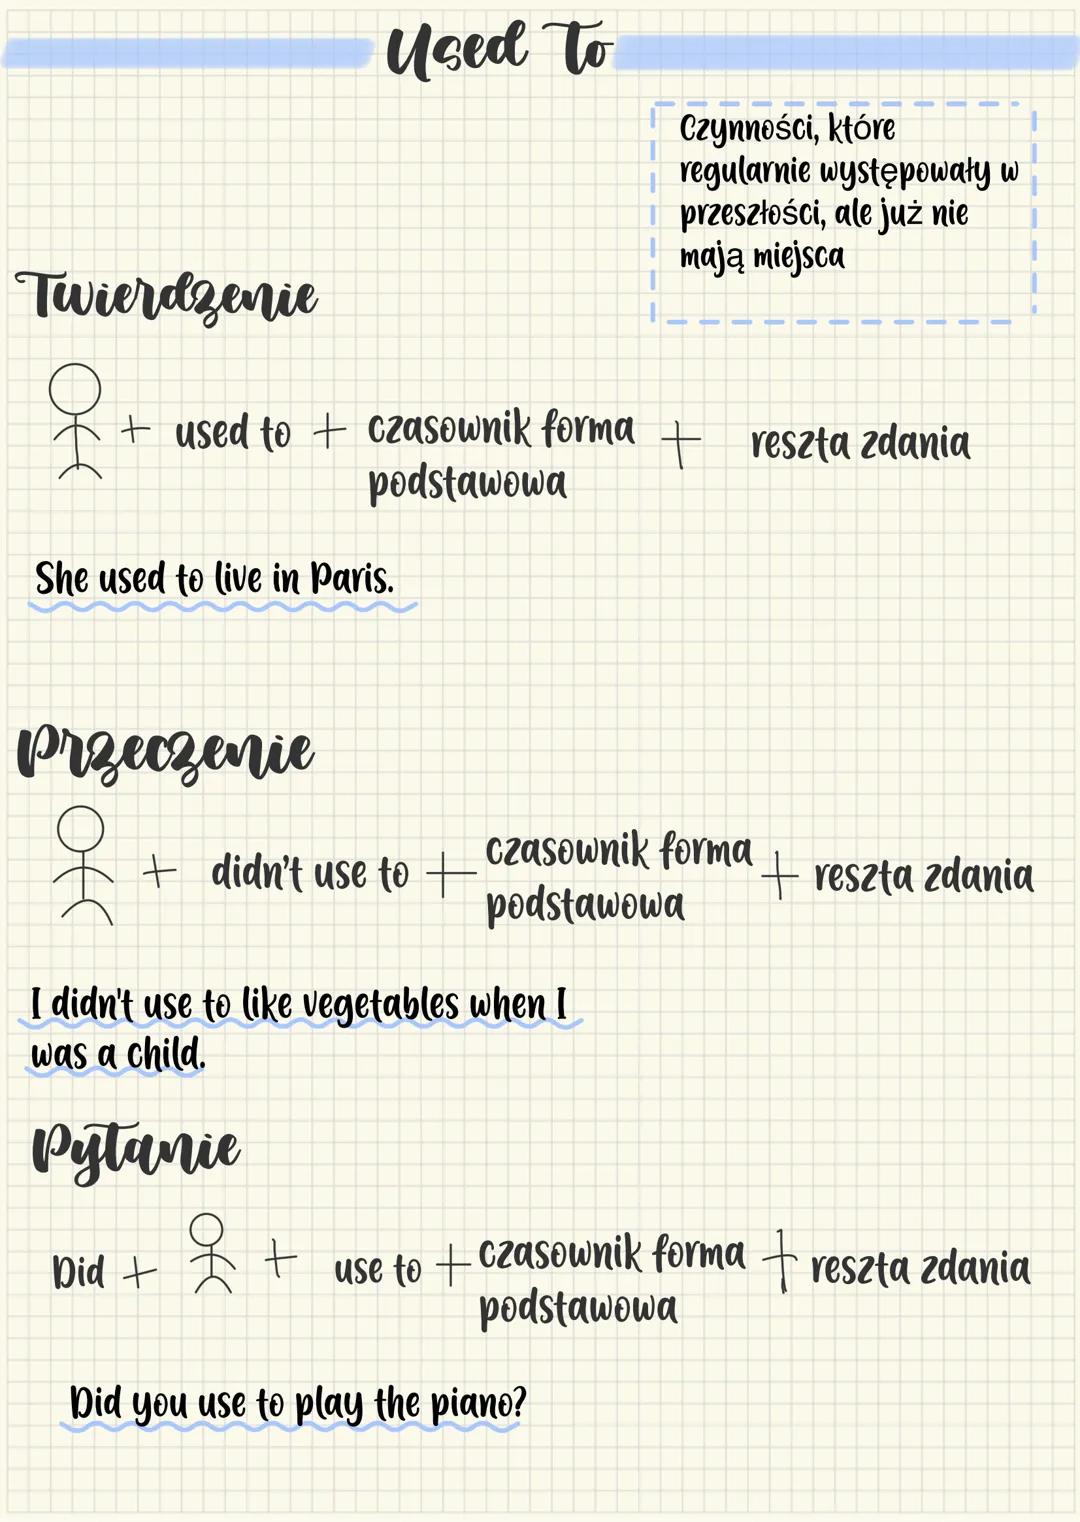 Used To
Czynności, które
regularnie występowały w
przeszłości, ale już nie
mają miejsca
Twierdzenie
+ used to + czasownik forma + reszta zdania
podstawowa
She used to live in Paris.
Przeczenie
+ didn't use to + czasownik forma + reszta zdania
podstawowa
I didn't use to like vegetables when I
was a child.
Pytanie
Did + + use to + czasownik forma + reszta zdania
podstawowa
Did you use to play the piano?